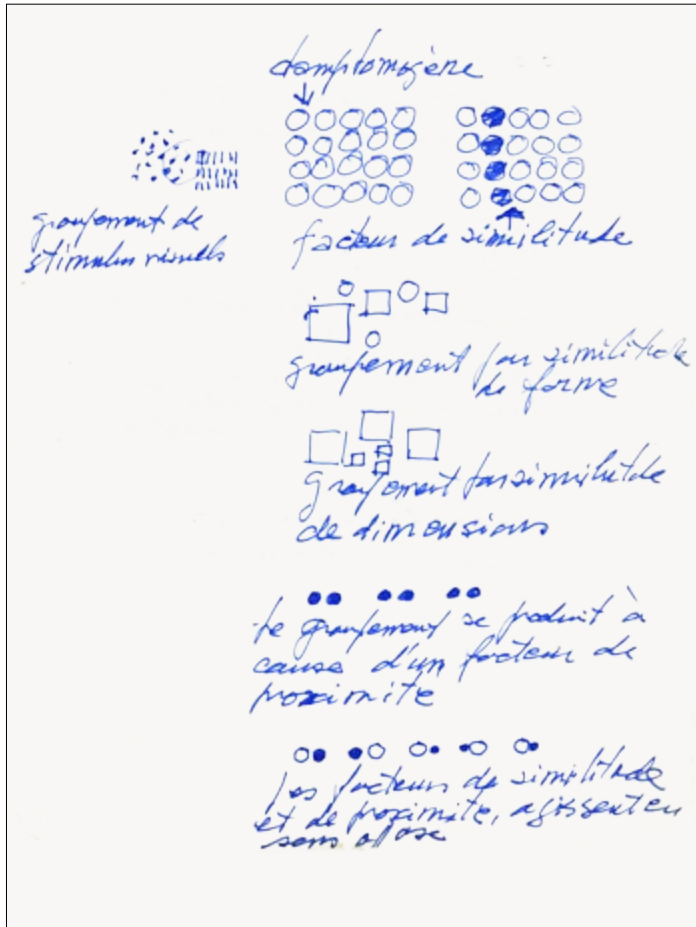 champ homogène
groupement de
stimulus visuels
facteur de similitude
groupement par similitude
de forme
groupement par similitude
de dimensions
le groupement se produit à
cause d'un facteur de
proximité
les facteurs de similitude
et de proximité, agissent en
sens opposé